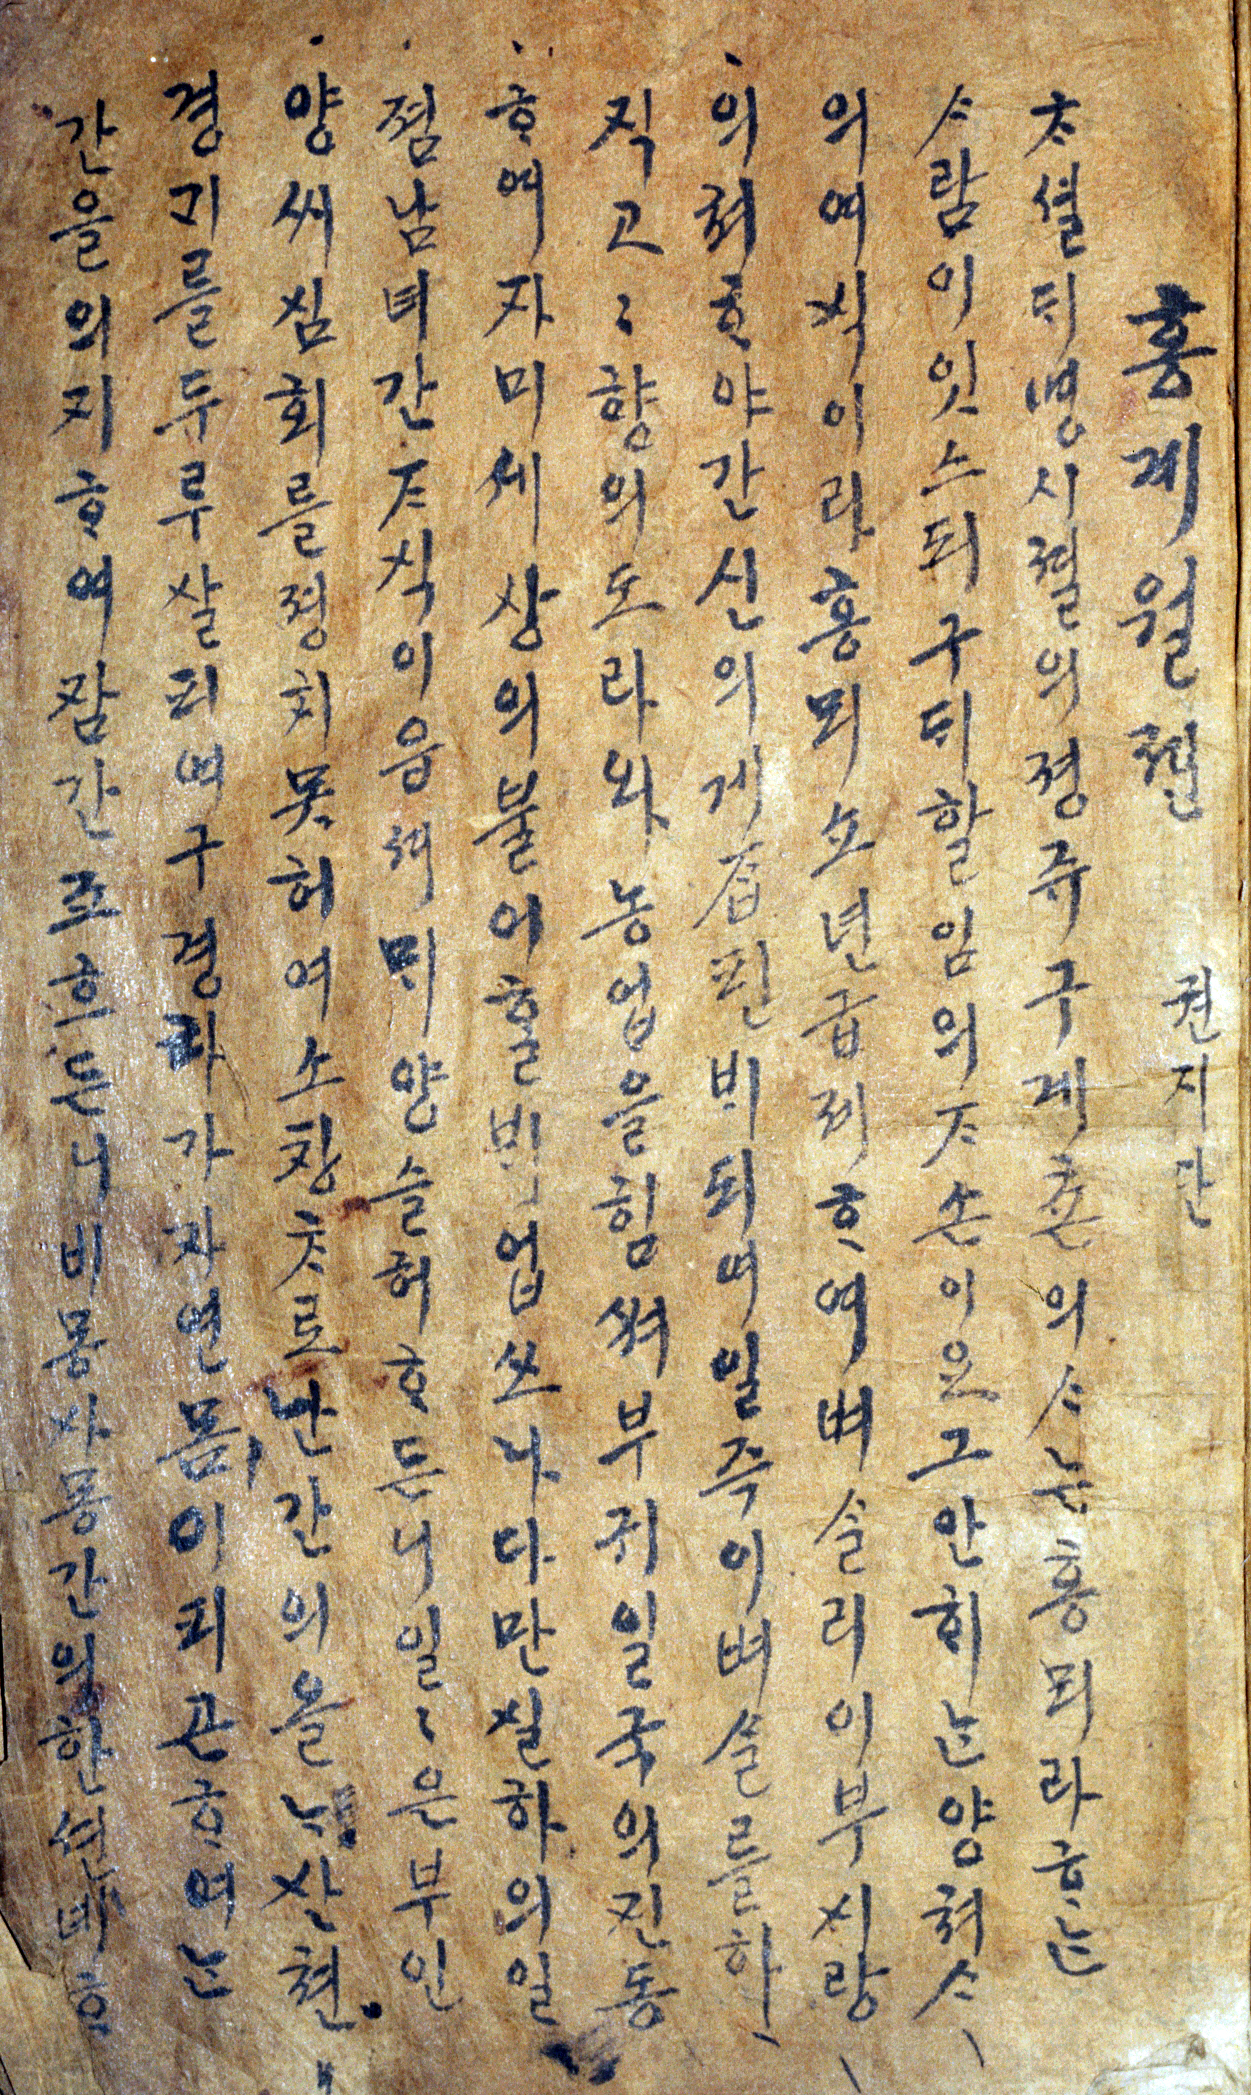 홍계월젼
권지단
ᄎᆞ셜ᄃᆡ명시졀의졍쥬구계촌의ᄉᆞ는홍ᄆᆡ라ᄒᆞᄂᆞᆫ
ᄉᆞ람이잇스되구ᄃᆡ할임의ᄌᆞ손이요그안ᄒᆡᄂᆞᆫ양쳐ᄉᆞ
의여식이라홍ᄆᆡ쇼년급제ᄒᆞ여벼슬리이부시랑
의쳐ᄒᆞ야간신의게 핀ᄇᆡ되여일즉이벼슬를하
직고고향의도라와농업을힘쎠부귀일국의진동
ᄒᆞ여자미세상의불어ᄒᆞᆯᄇᆡ업쓰나다만실하의일
졈남녀간ᄌᆞ식이읍셔ᄆᆡ양슬허ᄒᆞ든니일일은부인
양씨심회를졍치못허여소창ᄎᆞ로난간의올ᄂᆞ산쳔
경ᄀᆡ를두루살피며구경라가자연몸이피곤ᄒᆞ여ᄂᆞᆫ
간을의지ᄒᆞ여잠간조흐든니비몽사몽간의한션녜ᄒᆞ